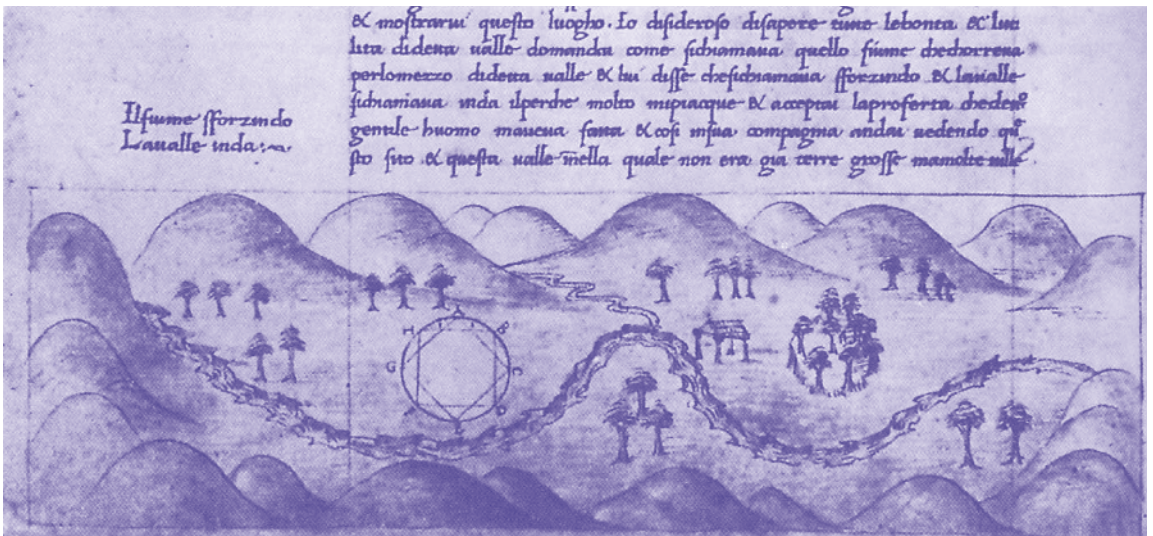 & mostrarui questo luogho. Io disideroso disapere lebonta &
lita didetta ualle domandai come sichiamaua quello fiume chechorreua
perlomezzo didetta ualle & lui disse chesichiamaua sforzindo & laualle
sichiamaua inda ilperche molto mipiacque & acceptai laproferta
gentile huomo maueua fatta & cosi insua compagnia andai uedendo
sto sito & questa ualle nella quale non era gia terre grosse mamolte uille
Ilfiume sforzindo
Laualle inda
H A B
G C